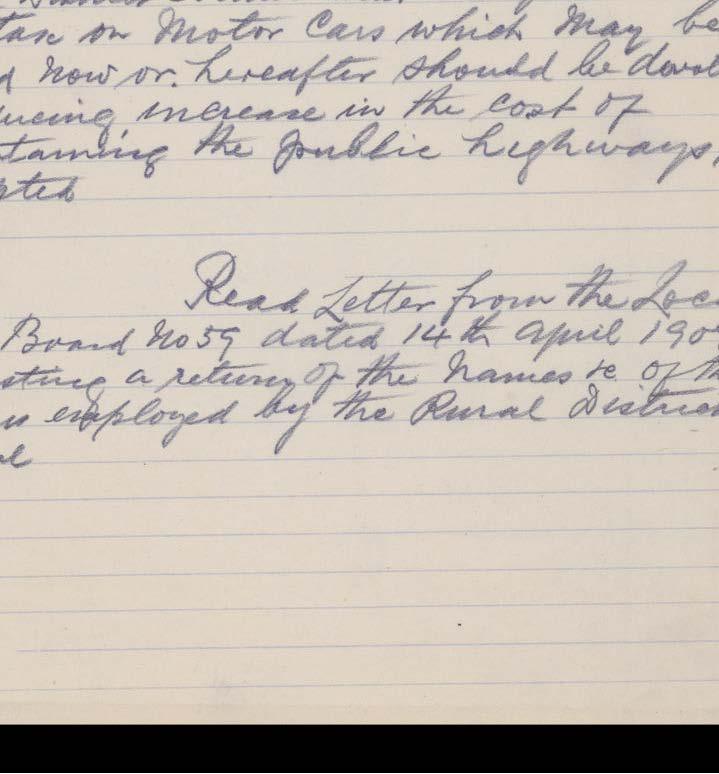 tax on Motor Cars which may be
now or hereafter should be devo
ucing increase in the cost of
taining the public highways,
pted
Read Letter from the Loc
Board No 59 dated 14th April 190
sting a return of the Names &c of th
employed by the Rural District